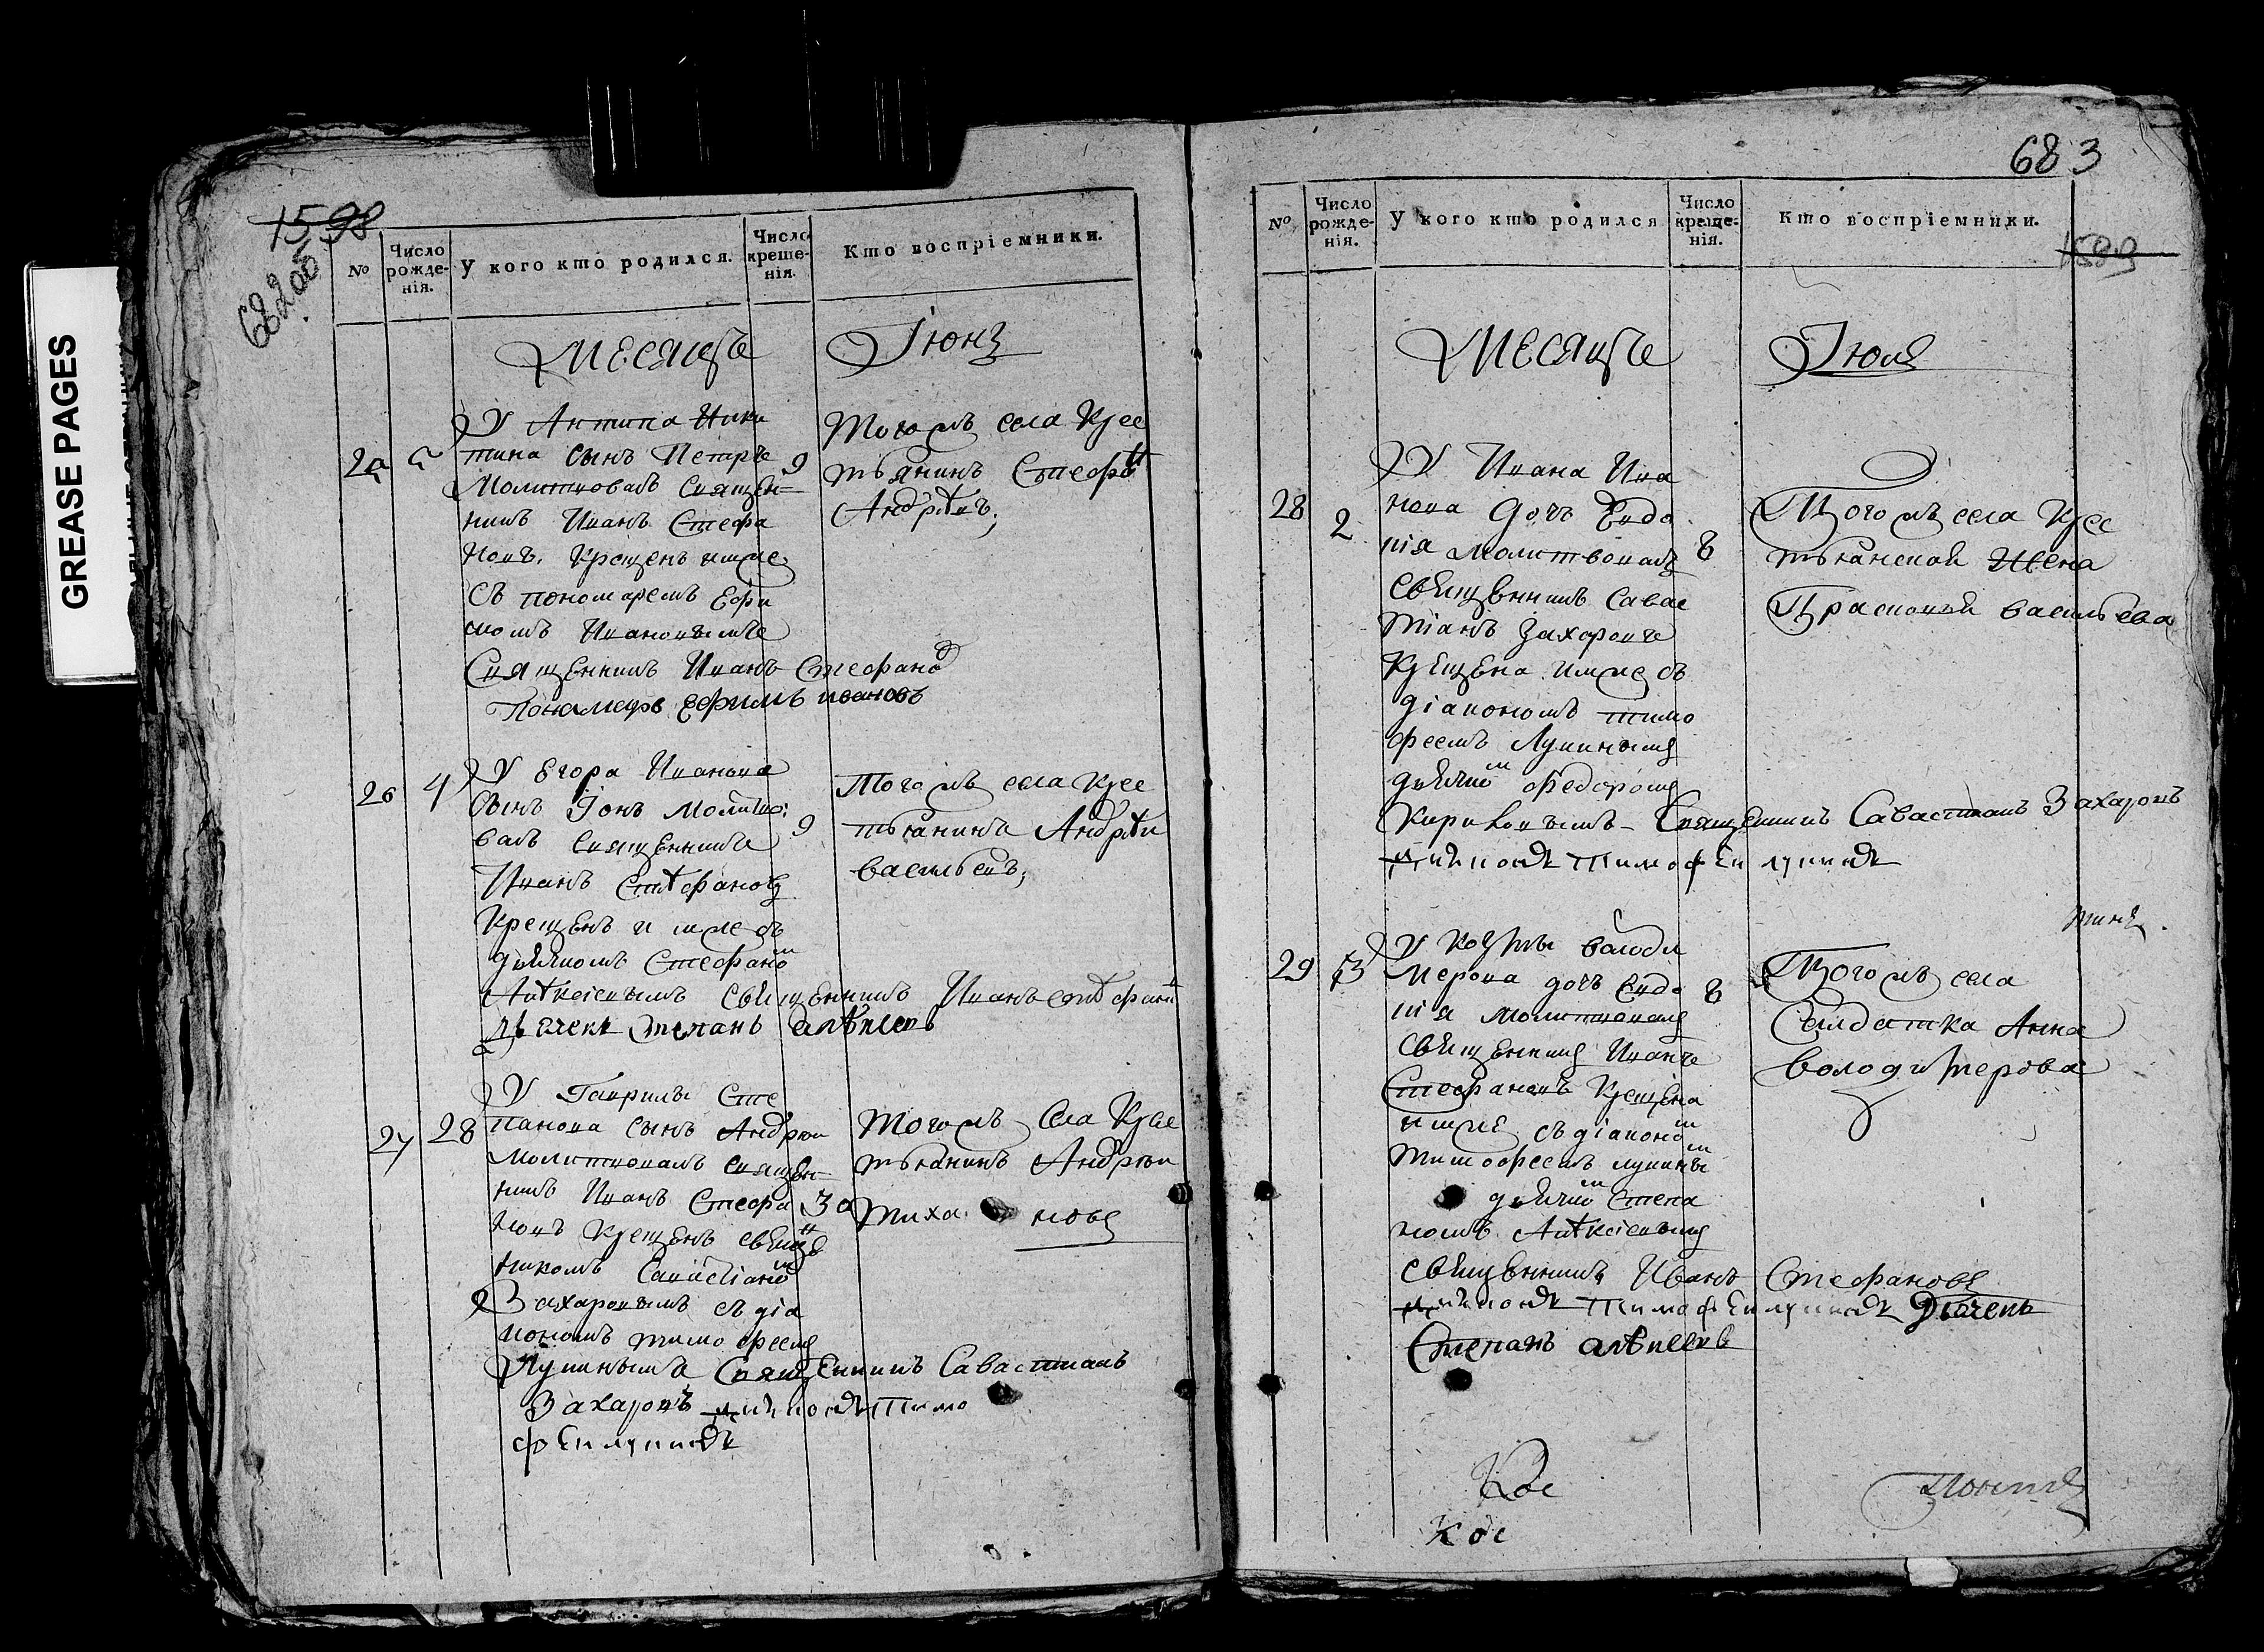 GREASE PAGES
1598
682 об
№
Число рожде-нія.
У кого кто родился.
Число креще-нія.
Кто воспріемники.
Месяцъ Іюнь
25 5 9
У Антипа Ники
тина сынъ Петръ
Молитвовалъ Священ=
никъ Иванъ Стефа
новъ. Крещенъ имже
съ пономаремъ Ефи
момъ Ивановымъ
Священникъ Иванъ Стефановъ
Пономарь Ефимъ Ивановъ
Тогожъ села Крес
тьянинъ Стефанъ
Андрѣевъ;
26 4 9
У Егора Иванова
Сынъ Іонъ Молитво:
валъ Священникъ
Иванъ Стѣфановъ
Крещенъ имже съ
дьячкомъ Стефаномъ
Алѣксіевымъ Священникъ Иванъ Стѣфановъ
Дьячекъ Степанъ Алѣксеевъ
Тогожъ села Крес
тьянинъ Андрѣй
Васильевъ;
27 28 30
У Гаврилы Сте
панова сынъ Андреи
Молитвовалъ Священ
никъ Иванъ Стефа
новъ Крещенъ Священ
никомъ Савастіаномъ
Захаровымъ съ діа
кономъ Тимофеемъ
Лукинымъ Священникъ Савастианъ
Захаровъ диаконъ Тимо
феи Лукинъ
Тогожъ села Крес
тьянинъ Андреи
Тиха новъ
683
№
Число рожде-нія.
У кого кто родился
Число креще-нія.
Кто воспріемники.
1599
Месяцъ Іюль
28 2 8
У Ивана Ива
нова Дочъ Евдо
кія Молитвовалъ
Священникъ Савас
тіанъ Захаровъ
Крещена имже съ
діакономъ Тимо
феемъ Лукинымъ
дьячкомъ Федоромъ
Кириковымъ Священникъ Савастианъ Захаровъ
диаконъ Тимофеи Лукинъ
Тогожъ села Крес
тьянская Жена
Прасковья Васильева
29 3 8
У Козмы Володи
мерова дочъ Евдо
кія Молитвовалъ
Священникъ Иванъ
Стефановъ Крещена
имже съ діакономъ
Тимофеемъ Лукинымъ
дьячкомъ Степа
номъ Алѣксіевымъ
Священникъ Иванъ Стефановъ
диаконъ Тимофеи Лукинъ Дьячекъ
Степанъ Алѣксеевъ
Тогожъ села
Салдатка Анна
Володимерова
Кос
Кос